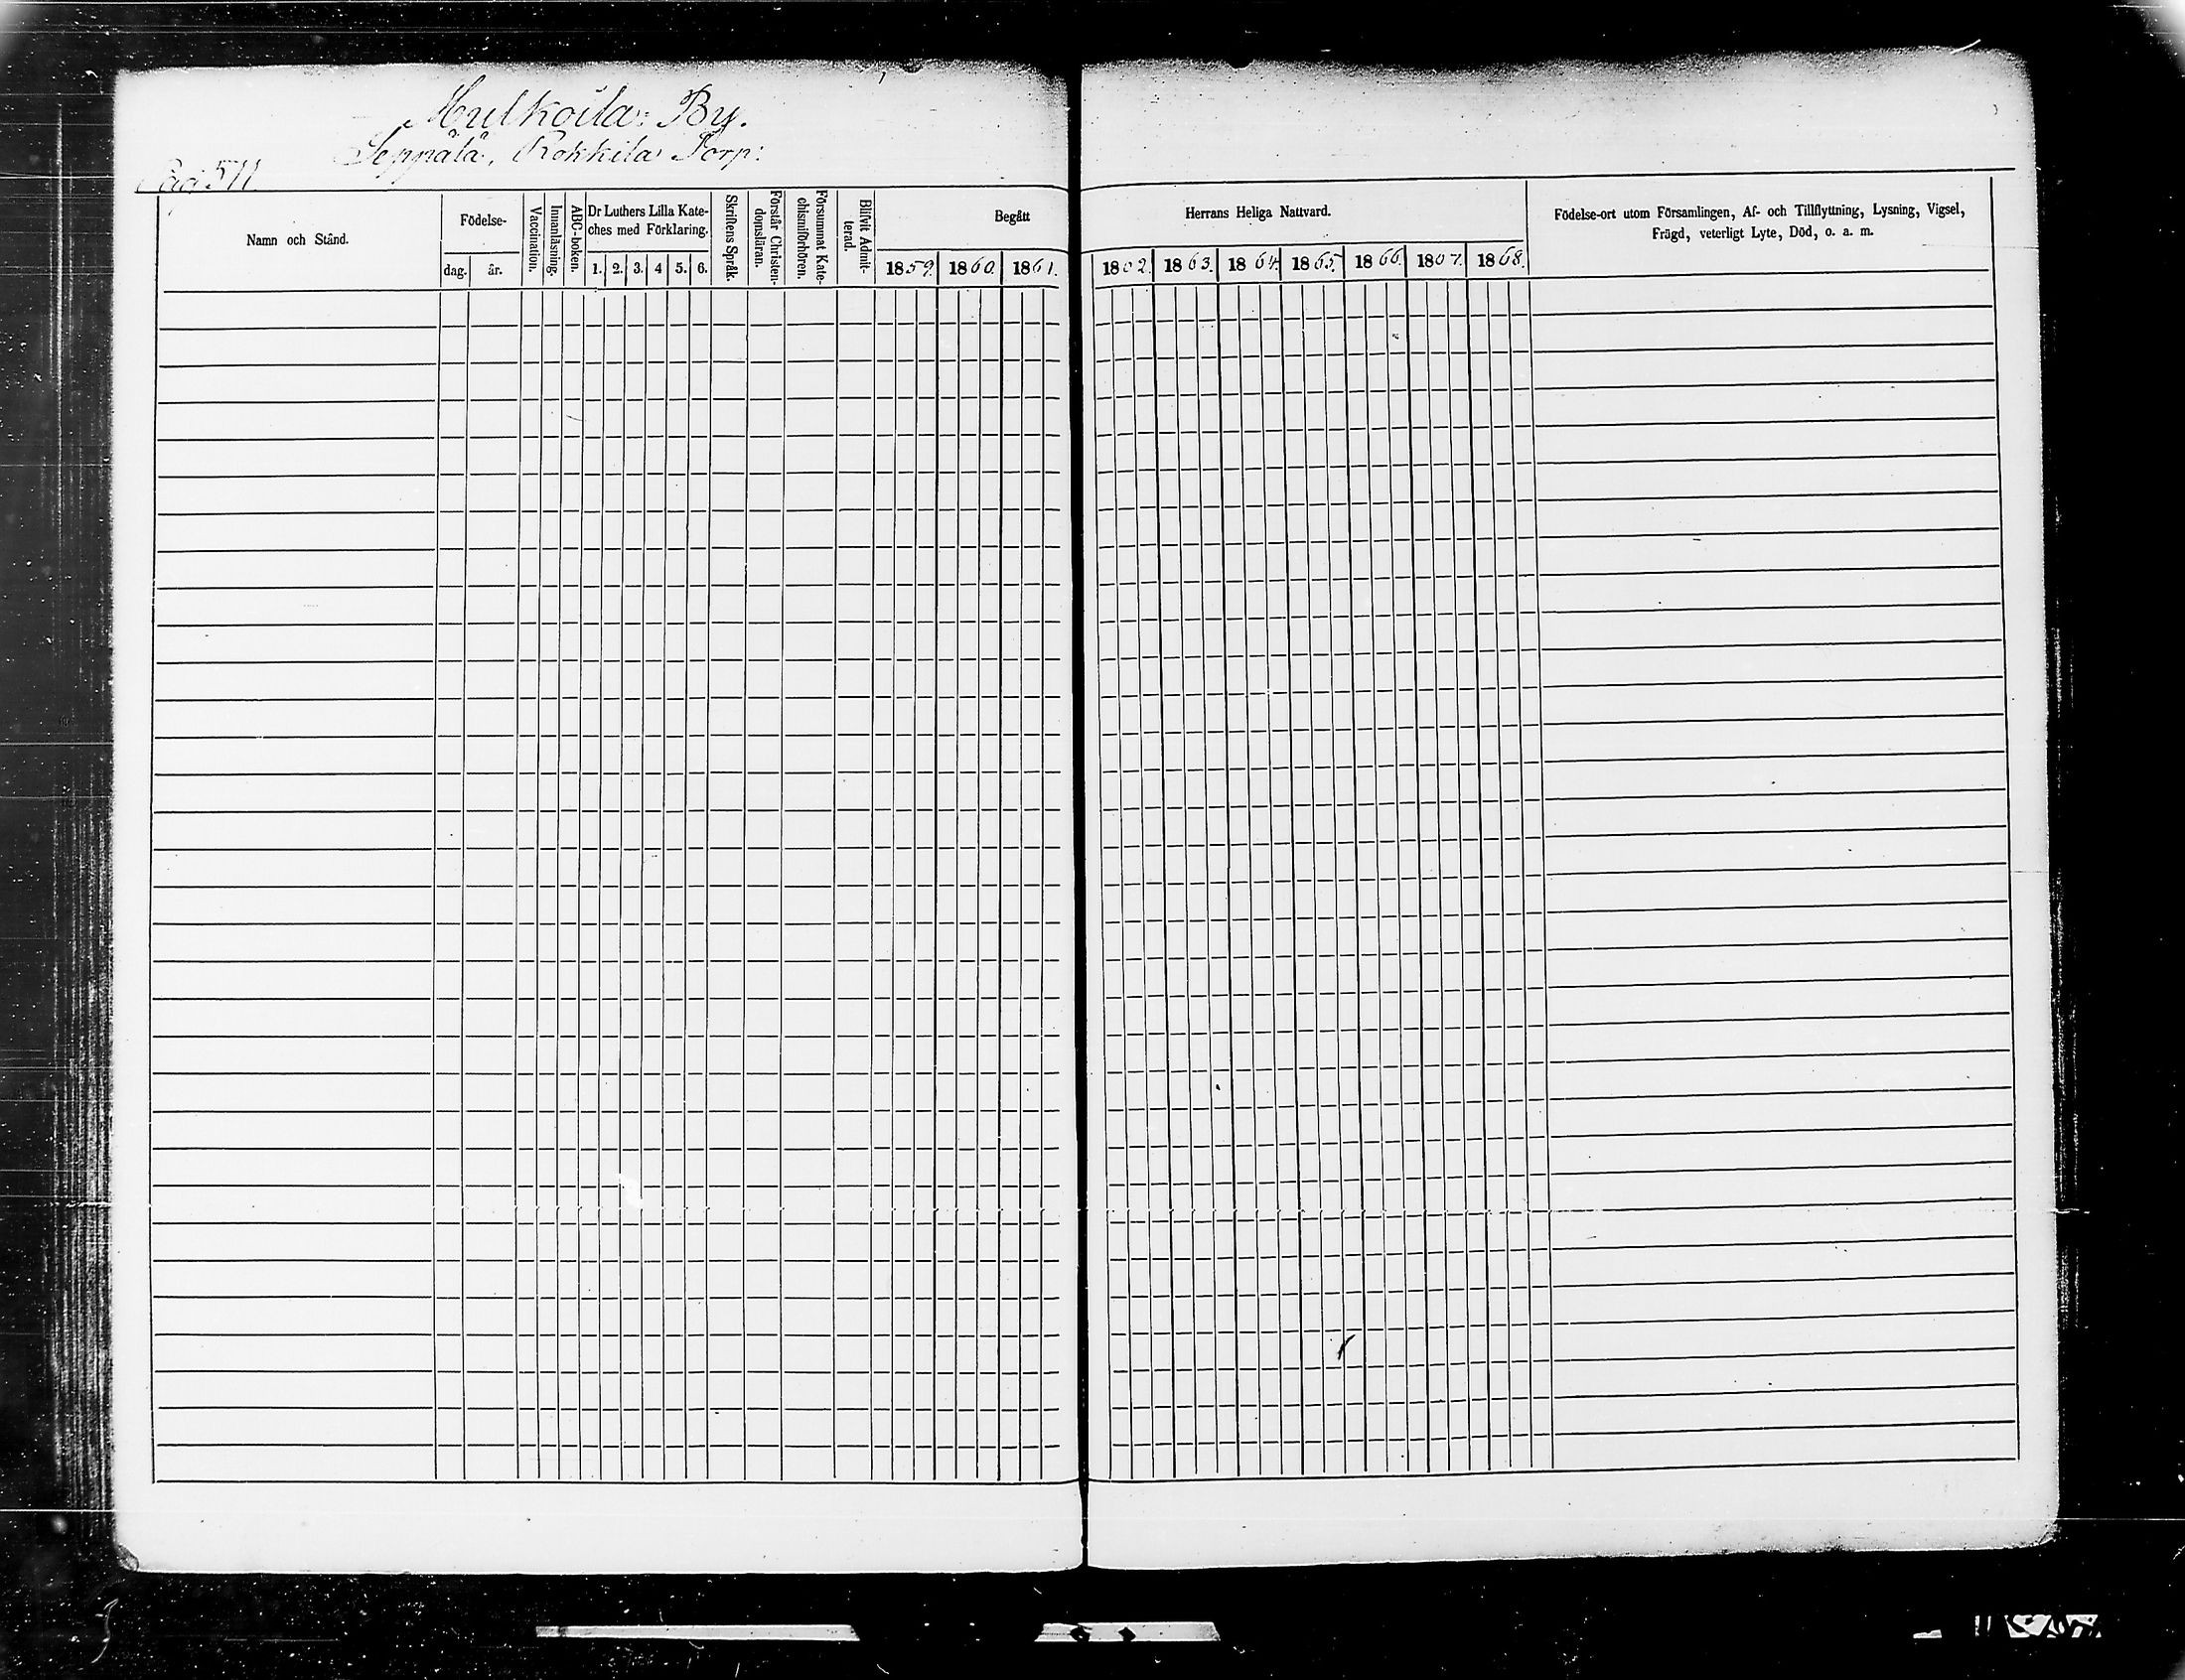 Hulkoila By.
Seppälä, Rokkila Torp:
Pag 511.
Namn och Stånd.
Födelse-
dag. år.
Vaccination.
Innanläsning.
ABC-boken.
Dr Luthers Lilla Kate-
ches med Förklaring.
1. 2. 3. 4 5. 6.
Skriftens Språk.
Förstår Christen-
domsläran.
Försummat Kate-
chismiförhören.
Blifvit Admit-
terad.
Begått
1859. 1860. 1861.
Herrans Heliga Nattvard.
1862. 1863. 1864. 1865. 1866. 1867. 1868.
Födelse-ort utom Församlingen, Af- och Tillflyttning, Lysning, Vigsel,
Frägd, veterligt Lyte, Död, o. a. m.